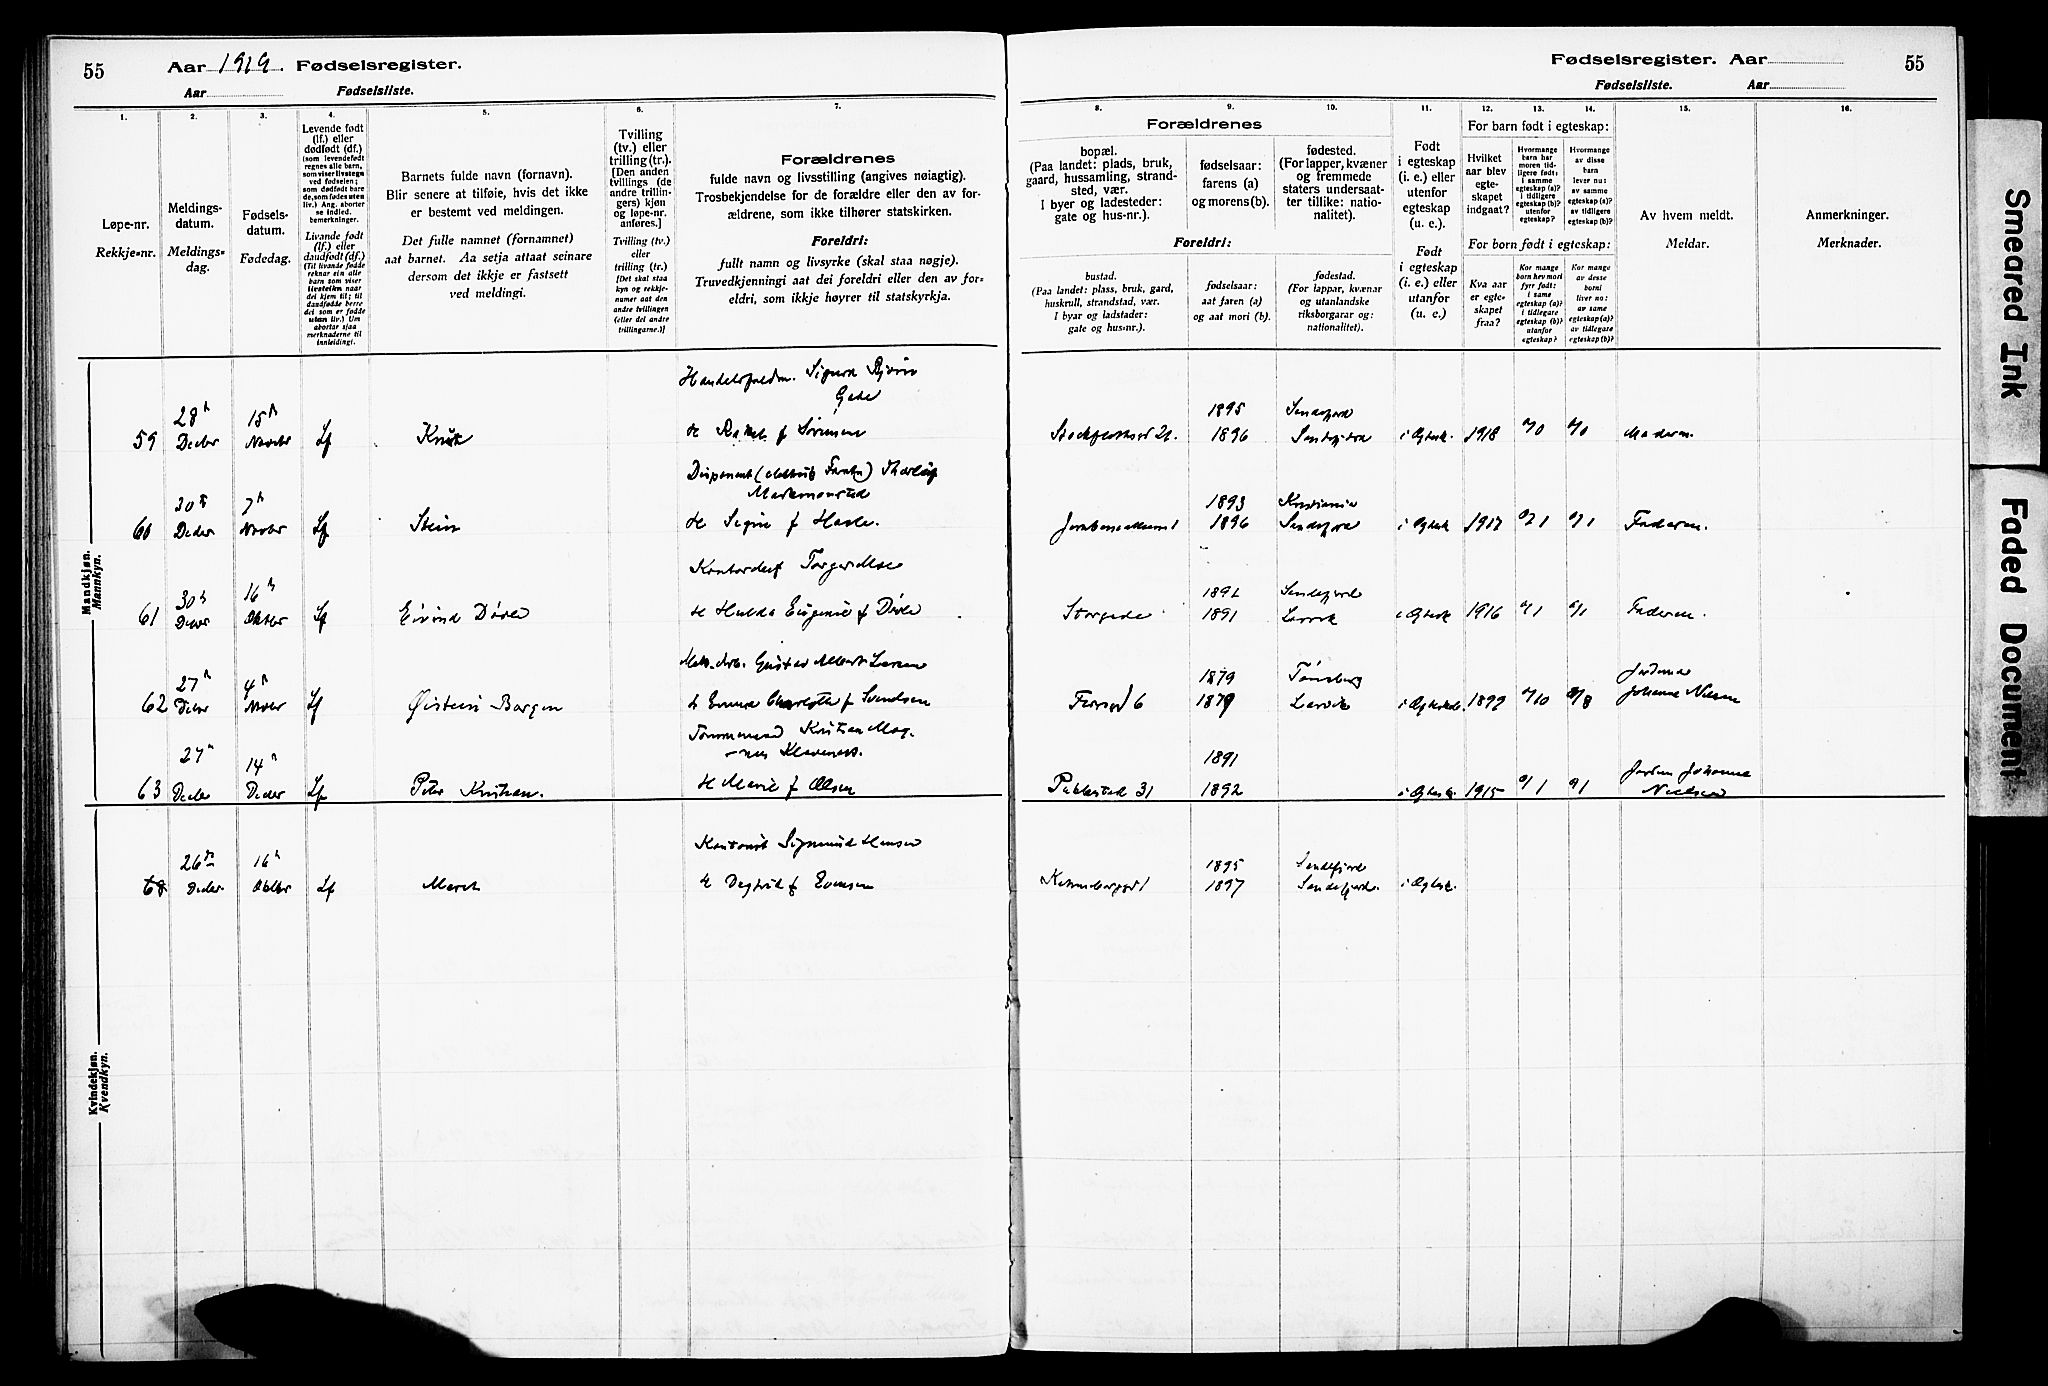 55
Aar 1919. Fødselsregister.
Aar Fødselsliste.
1.
2.
3.
4.
5.
6.
7.
Løpe-nr.
Rekkje-nr.
Meldings-
datum.
Meldings-
dag.
Fødsels-
datum.
Fødedag.
Levende født
(lf.) eller
dødfødt (df.)
(som levendefødt
regnes alle barn,
som viser livstegn
ved fødselen;
som dødfødt bare
de, som fødes uten
liv.) Ang. aborter
se indled.
bemerkninger.
Livande født
(lf.) eller
daudfødt (df.)
(Til livande fødde
reknar ein alle
barn som viser
livsteikn naar
dei kjem til; til
daudfødde berre
dei som er fødde
utan liv.) Um
abortar sjaa
merknaderne til
innleidingi.
Barnets fulde navn (fornavn).
Blir senere at tilføie, hvis det ikke
er bestemt ved meldingen.
Det fulle namnet (fornamnet)
aat barnet. Aa setja attaat seinare
dersom det ikkje er fastsett
ved meldingi.
Tvilling
(tv.) eller
trilling (tr.).
[Den anden
tvillings (de
andre trillin-
gers) kjøn
og løpe-nr.
anføres.]
Tvilling (tv.)
eller
trilling (tr.)
[Det skal staa
kyn og rekkje-
numer aat den
andre tvillingen
(eller dei andre
trillingarne.)]
Forældrenes
fulde navn og livsstilling (angives nøiagtig).
Trosbekjendelse for de forældre eller den av for-
ældrene, som ikke tilhører statskirken.
Foreldri:
fullt namn og livsyrke (skal staa nøgje).
Truvedkjenningi aat dei foreldri eller den av for-
eldri, som ikkje høyrer til statskyrkja.
Fødselsregister. Aar
55
Fødselsliste. Aar
8.
9.
10.
11.
12.
13.
14.
15.
16.
Forældrenes
bopæl.
(Paa landet: plads, bruk,
gaard, hussamling, strand-
sted, vær.
I byer og ladesteder:
gate og hus-nr.).
fødselsaar:
farens (a)
og morens (b).
fødested.
(For lapper, kvæner
og fremmede
staters undersaat-
ter tillike: natio-
nalitet).
Foreldri:
bustad.
(Paa landet: plass, bruk, gard,
huskrull, strandstad, vær.
I byar og ladstader:
gate og hus-nr.).
fødselsaar:
aat faren (a)
og aat mori (b).
fødestad.
(For lappar, kvænar
og utanlandske
riksborgarar og:
nationalitet).
Født
i egteskap
(i. e.) eller
utenfor
egteskap
(u. e.).
Født
i egteskap
(i. e.) eller
utanfor
(u. e.)
For barn født i egteskap:
Hvilket
aar blev
egte-
skapet
indgaat?
Hvormange
barn har
moren tid-
ligere født:
i samme
egteskap (a)?
i tidligere
egteskap (b)?
utenfor
egteskap?
Hvormange
av disse
barn
lever nu:
av samme
egteskap (a)?
av tidligere
egteskap (b)?
For born født i egteskap:
Kva aar
er egte-
skapet
fraa?
Kor mange
born hev mori
fyrr født:
i same
egteskap (a)?
i tidlegare
egteskap (b)?
utanfor
egteskap?
Kor mange
av desse
borni
liver no:
av same
egteskap (a)?
av tidlegare
egteskap (b)?
Av hvem meldt.
Meldar.
Anmerkninger.
Merknader.
Mandkjøn.
Mannkyn.
59 28 Decbr 15 Novbr Lf Sigurd 1895 Sandefjord
1896 Sandefjord i Egtesk. 1918 a/0 a/0 Moderen
60 30 Decbr 7 Novbr Lf Stein 1893 Kristiania
H Signe f 1896 Sandefjord i Egtesk 1917 a/1 a/1 Faderen.
61 30 16 Oktbr Lf Eivind 1892 Sandefjord
H Hulda Eugenie f Storgade 1891 Larvik i Egtesk 1916 a/1 a/1 Faderen.
62 27 4 Novbr Lf Øistein Borgen Gustav Albert Larsen 1879 Tønsberg
Emma Charlotte f Svendsen 6 1879 Larvik i Egtesk. 1899 a/10 a/8 Johanne
63 27 Decbr 14 Decbr Lf Peter Kristian. Kristian Mag-
nus Klaveness. 1891
H Marie f Olsen 31 1892 i Egtesk. 1915 a/1 a/1 Johanne
Nielsen
Kvindekjøn.
Kvendkyn.
68 26 Decbr 16 Oktbr Lf Kontorist Sigmund Hansen 1895 Sandefjord
f Evensen 1897 Sandefjord. i Egtesk.
Smeared Ink
Faded Document